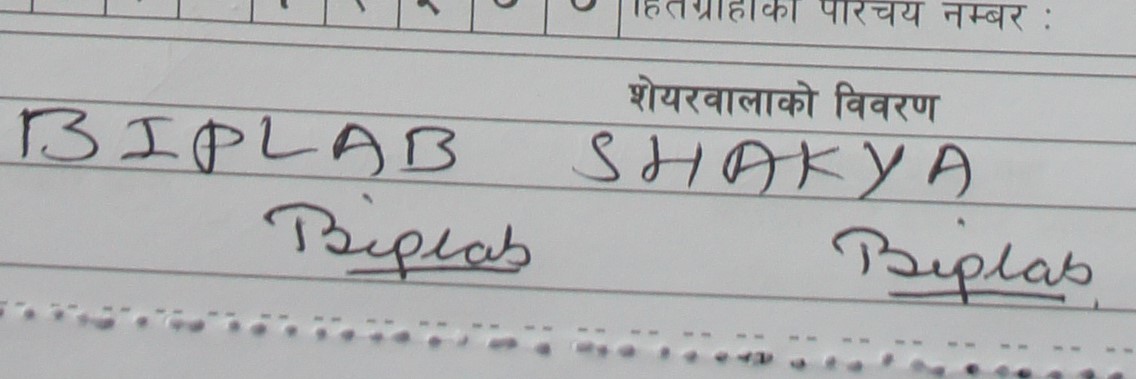 हितग्राहीको परिचय नम्बर :
शेयरवालाको विवरण
BIPLAB SHAKYA
Biplab Biplab